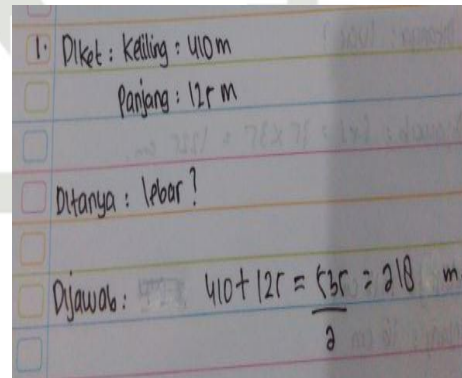 1. Diket : Keliling : 410 m
Panjang : 125 m
Ditanya : lebar ?
Dijawab : 410 + 125 = 535 = 218 m
2